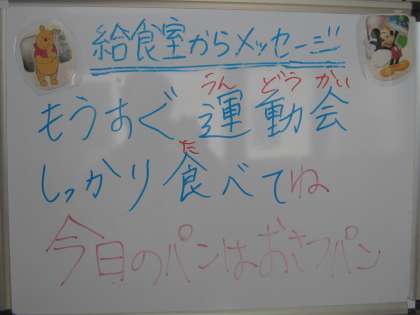 給食室からメッセージ
うん どう かい
もうすぐ 運動会
た
しっかり食べてね
今日のパンはおさつパン